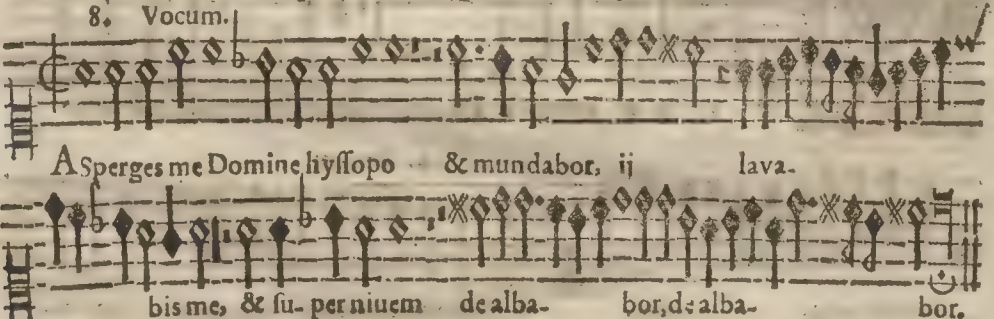 8. Vocum.
ASperges me Domine hyſſopo & mundabor, ij lava-
bis me, & ſu- per niuem de alba- bor, de alba- bor.